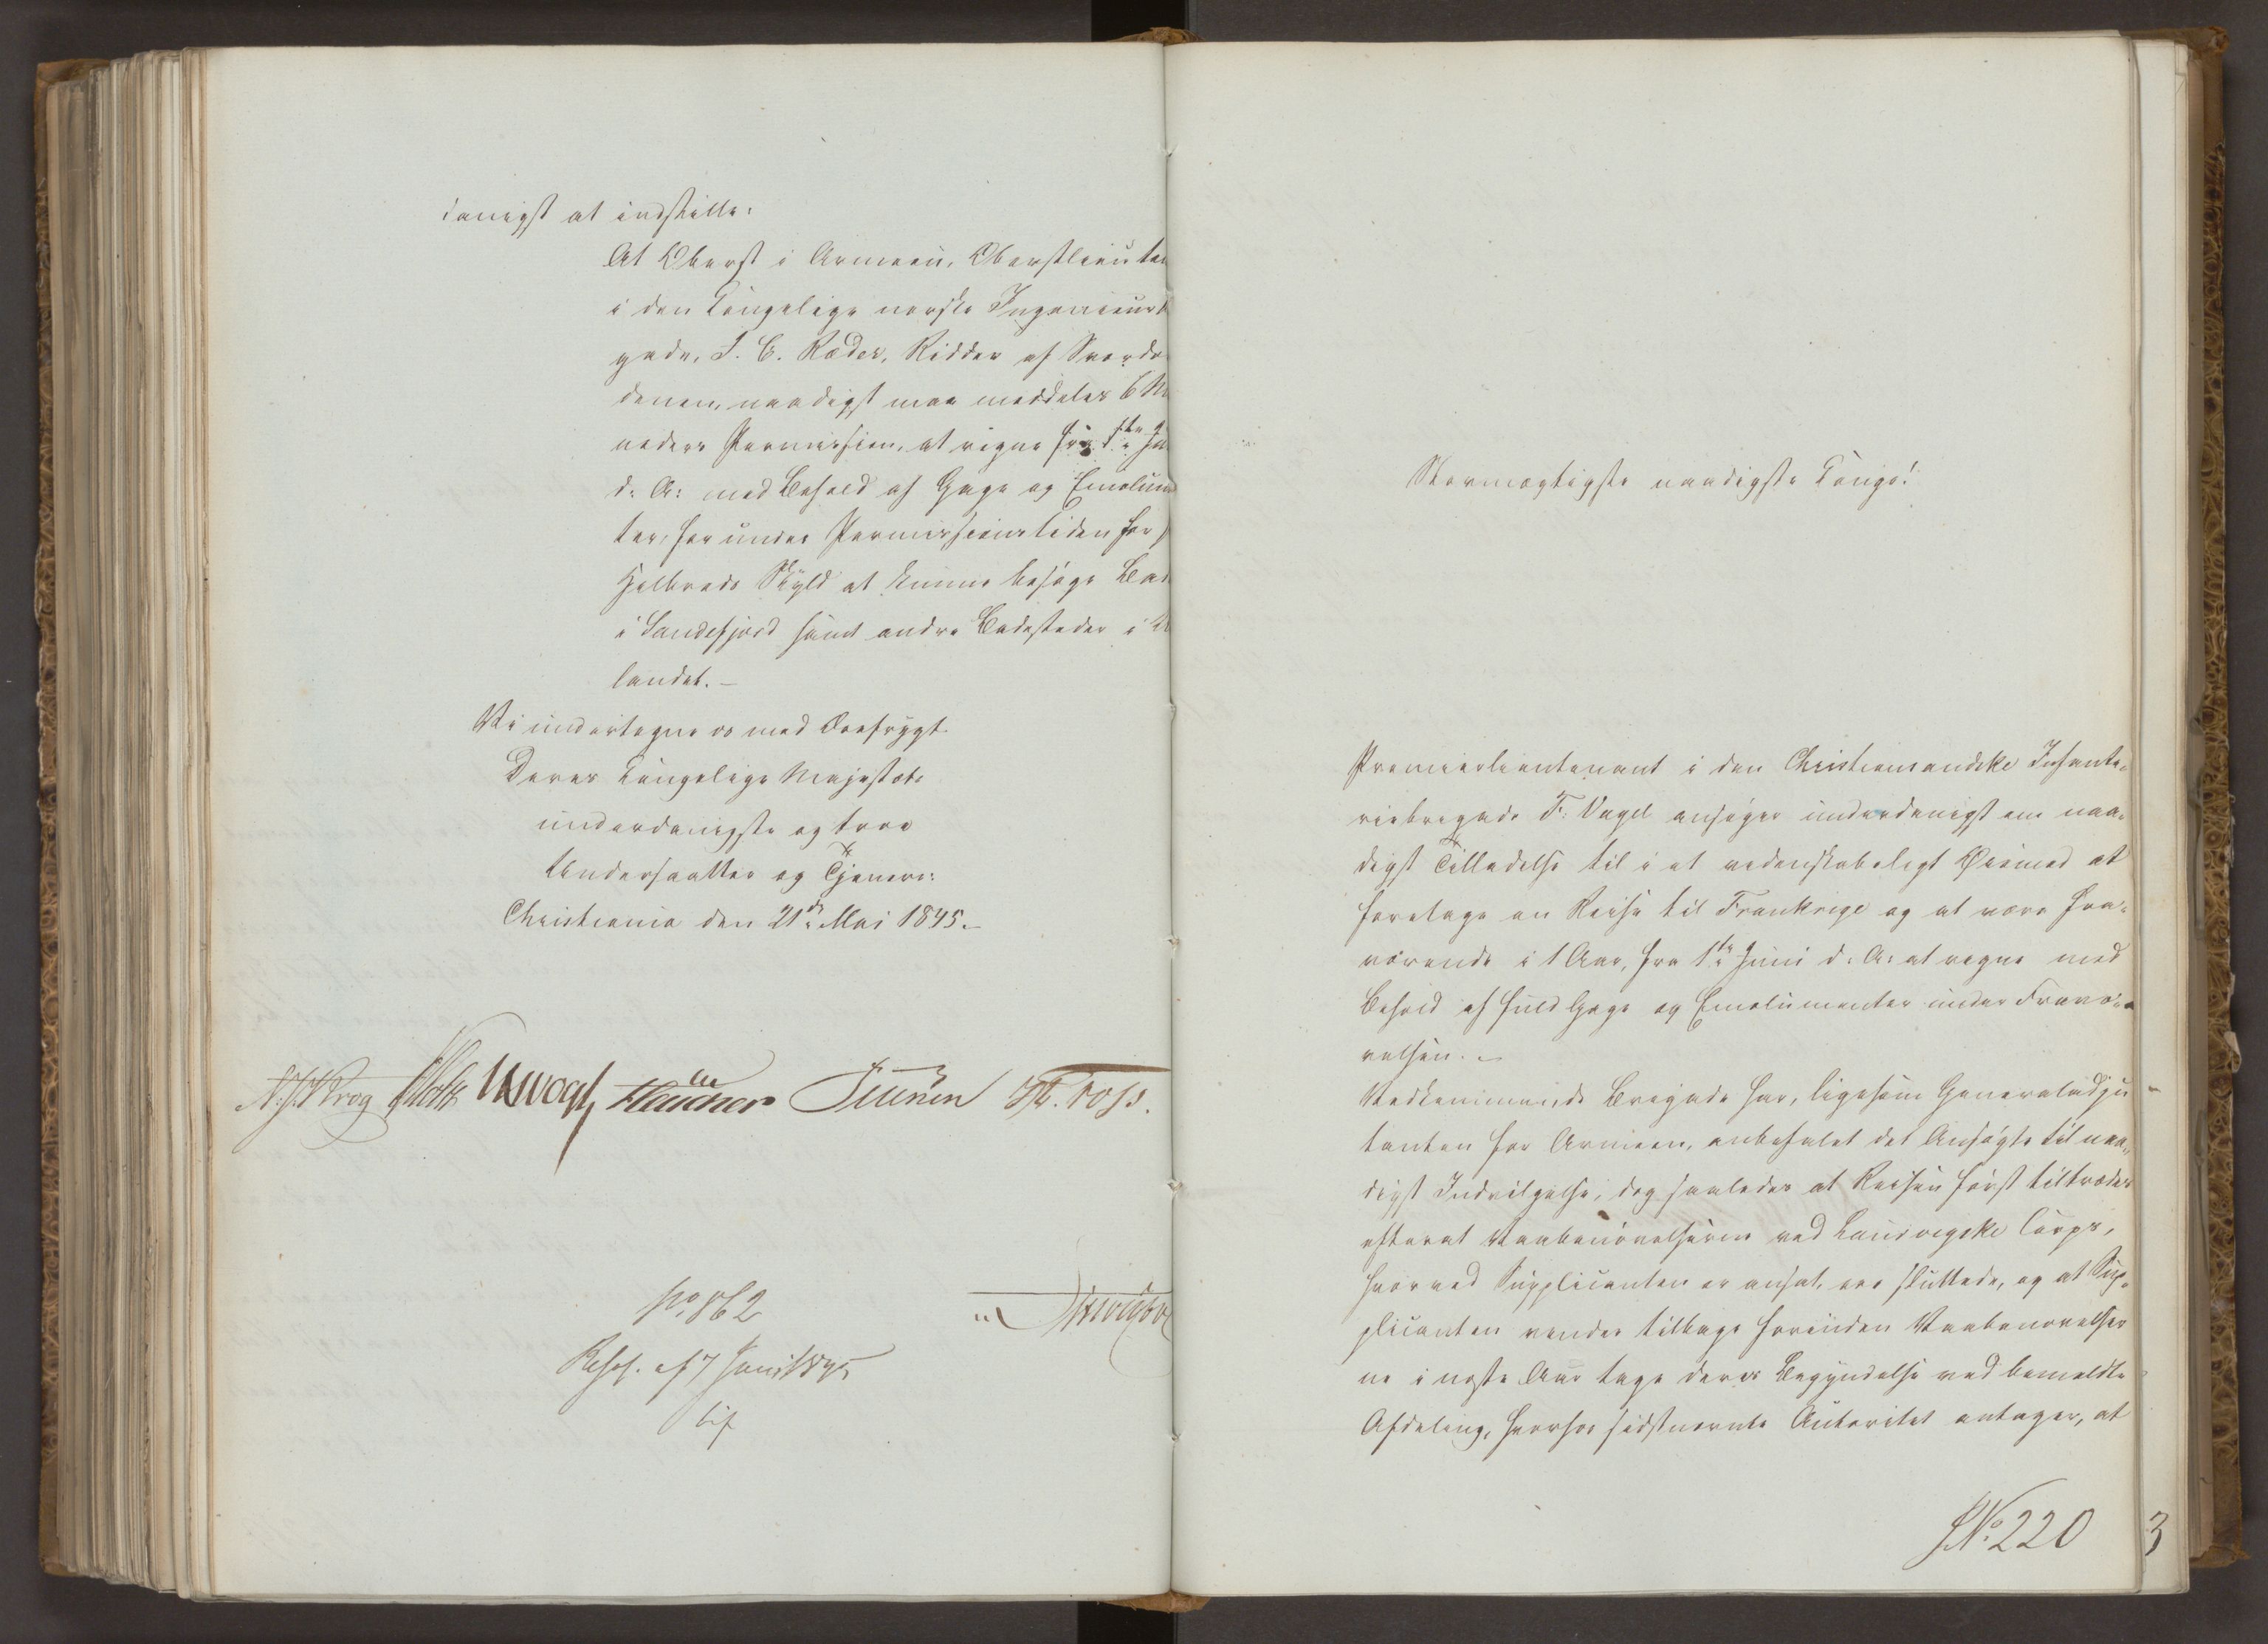 danigst at indstille:
At Oberst i Armeen, Oberstlieuten
i den Kongelige norske Ingenieurb
gade, J. C. Ræder, Ridder af Sværdo
denen, naadigst maa meddeles 6 Ma
neders Permission, at regne fra 1ste Ju
d: A: med Behold af Gage og Emolumen
ter, for under Permissionstiden for
Helbreds Skyld at kunne besøge Bad
i Sandefjord samt andre Badesteder i U
landet. —
Vi undertegne os med Ærefrygt
Deres Kongelige Majestæts
underdanigste og troe
Undersaatter og Tjenere:
Christiania den 21de Mai 1845.
N. J. Krog Holst JHVogt Fleischer Sibbern
No. 862
Resol. af 7 Juni 1845
bif
Stormægtigste naadigste Konge!
Premierlieutenant i den Christiansandske Infante-
riebrigade F: Vagel ansøger underdanigst om naa-
digst Tilladelse til i et videnskabeligt Øiemed at
foretage en Reise til Frankrige og at være fra-
værende i 1 Aar, fra 1ste Juni d: A: at regne med
Behold af fuld Gage og Emolumenter under Fravæ-
relsen. —
Vedkommende Brigade har, ligesom Generaladju-
tanten for Armeen, anbefalet det Ansøgte til naa-
digst Indvilgelse, dog saaledes at Reisen først tiltrædes
efterat Vaabenøvelserne ved Laurvigske Corps,
hvorved Supplicanten er ansat, ere sluttede, og at Sup-
plicanten vender tilbage forinden Vaabenøvelser
ne i næste Aar tage deres Begyndelse ved bemeldte
Afdeling, hvorhos sidstnævnte Autoritet antager, at
JNo. 220
3